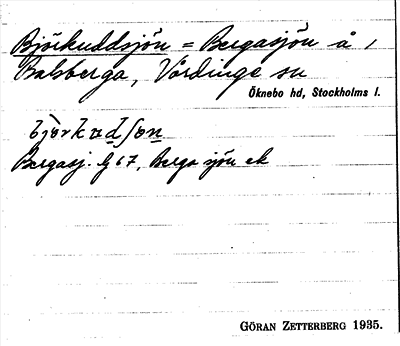 Björkuddsjön = Bergasjön å 1
Balsberga, Vårdinge sn
Öknebo hd, Stockholms l.
Bergasj. G 67, Berga sjön ek
GÖRAN ZETTERBERG 1935.